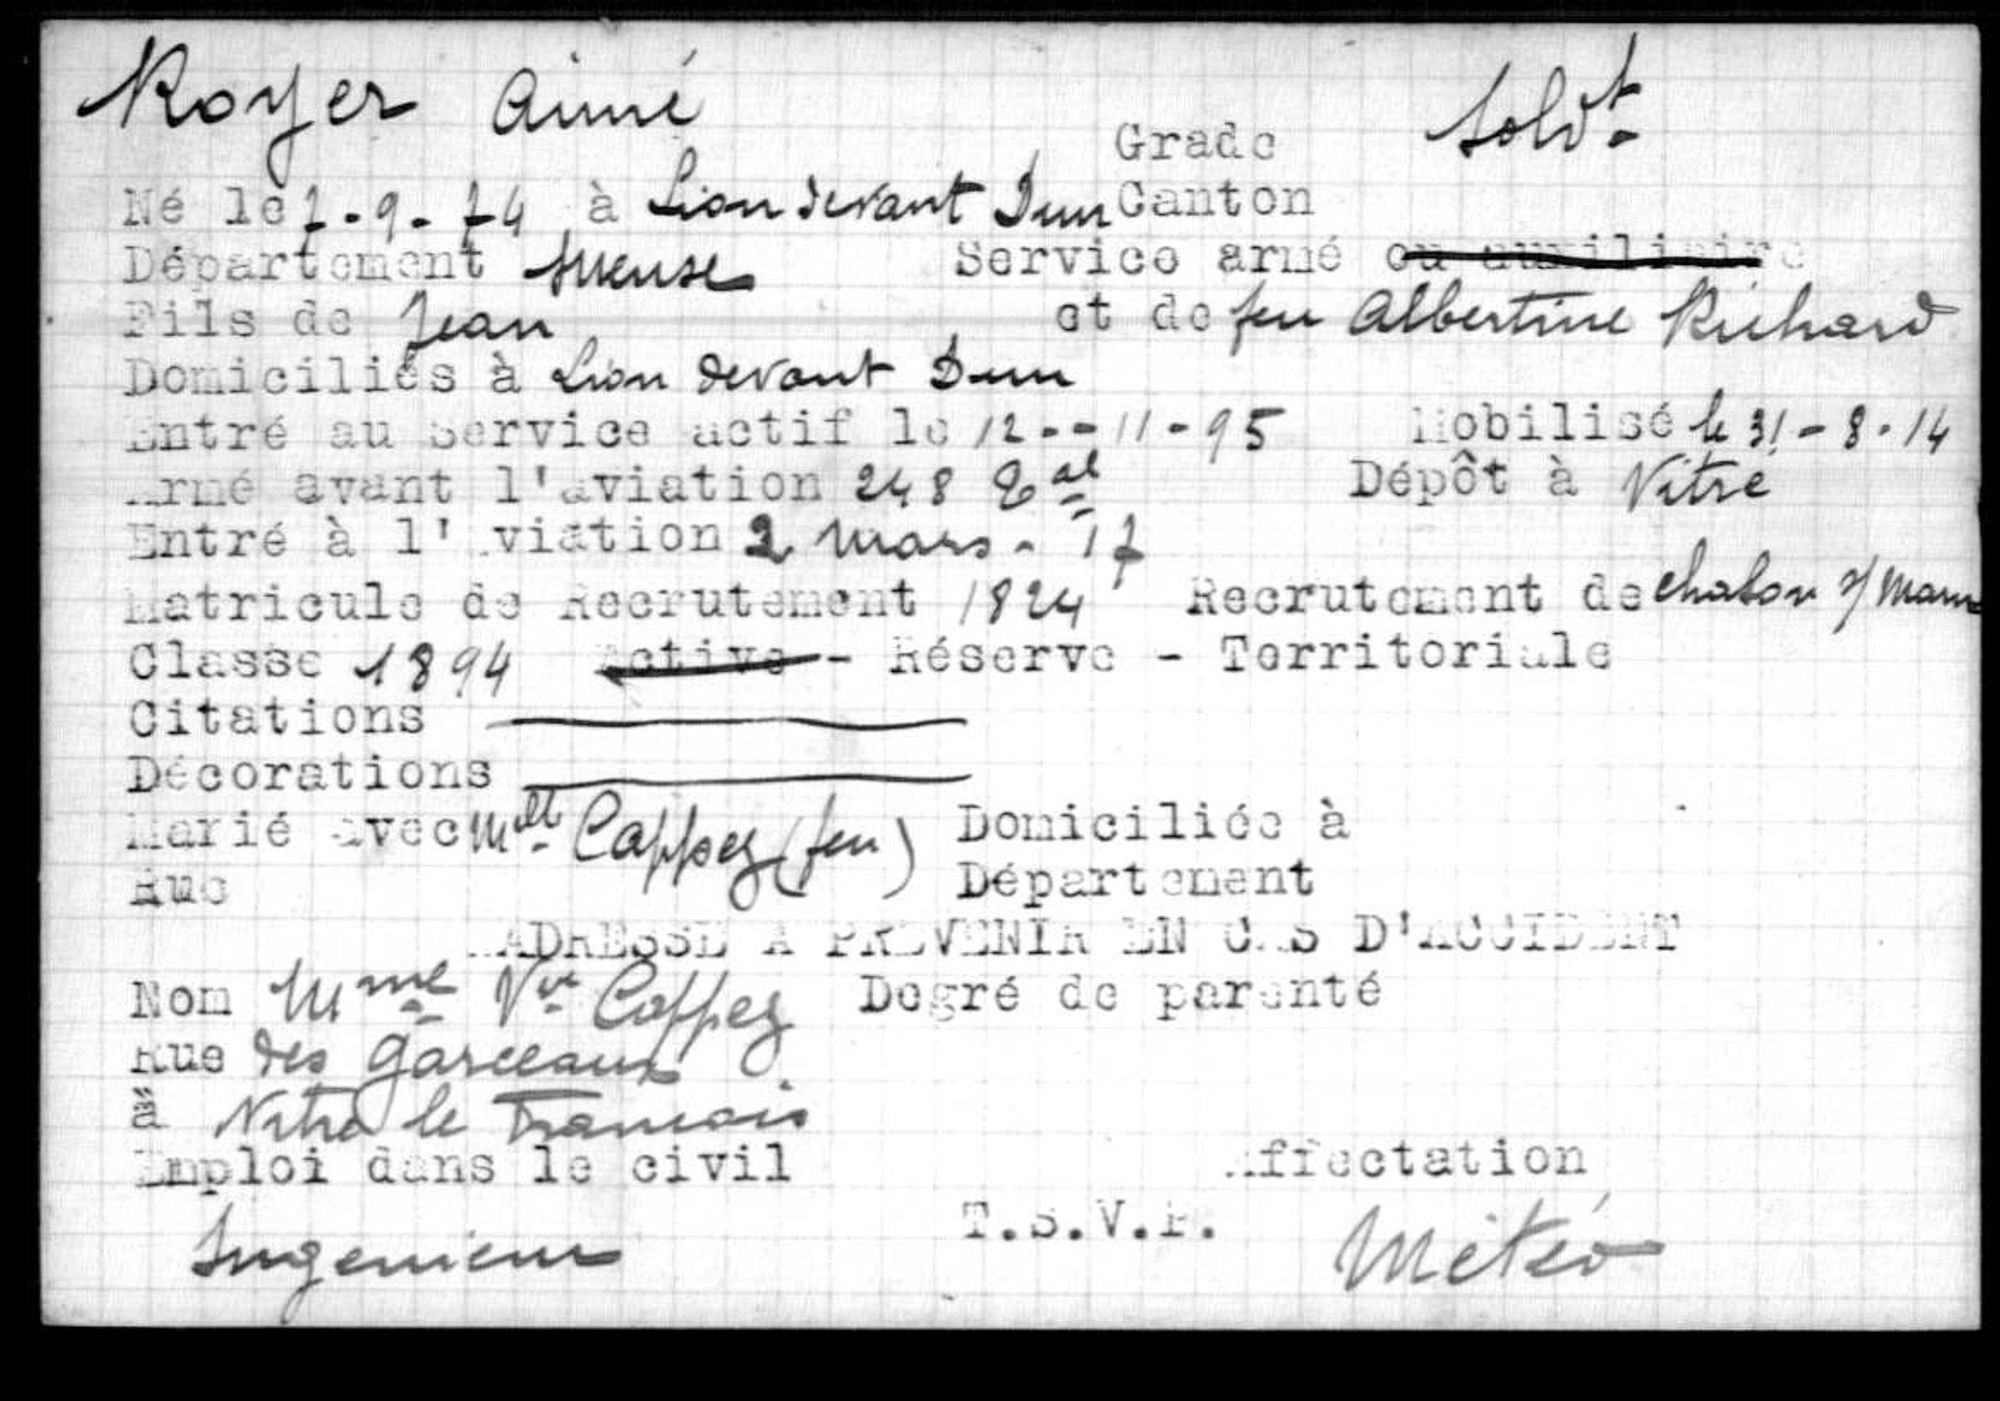 Royer Aimé
Grade Soldt
Né le 7-9-74 à Lion devant Dun Canton
Département Meuse Service armé ou auxiliaire
Fils de Jean et de feu Albertine Richard
Domiciliés à Lion devant Dun
Entré au Service actif le 12--11-95 Mobilisé le 31-8-14
Armé avant l'aviation 248 Tal Dépôt à Vitré
Entré à l'aviation 2 mars - 17
Matricule de Recrutement 1824 Recrutement de Chalon s/ Marne
Classe 1894 Active - Réserve - Territoriale
Citations
Décorations
Marié avec Mlle Coppez (feu) Domiciliée à
Rue Département
ADRESSE A PREVENIR EN CAS D'ACCIDENT
Nom Mme Vve Coppez Degré de parenté
Rue des
à Vitré le Francois
Emploi dans le civil Affectation
T.S.V.P.
Ingenieur Météo